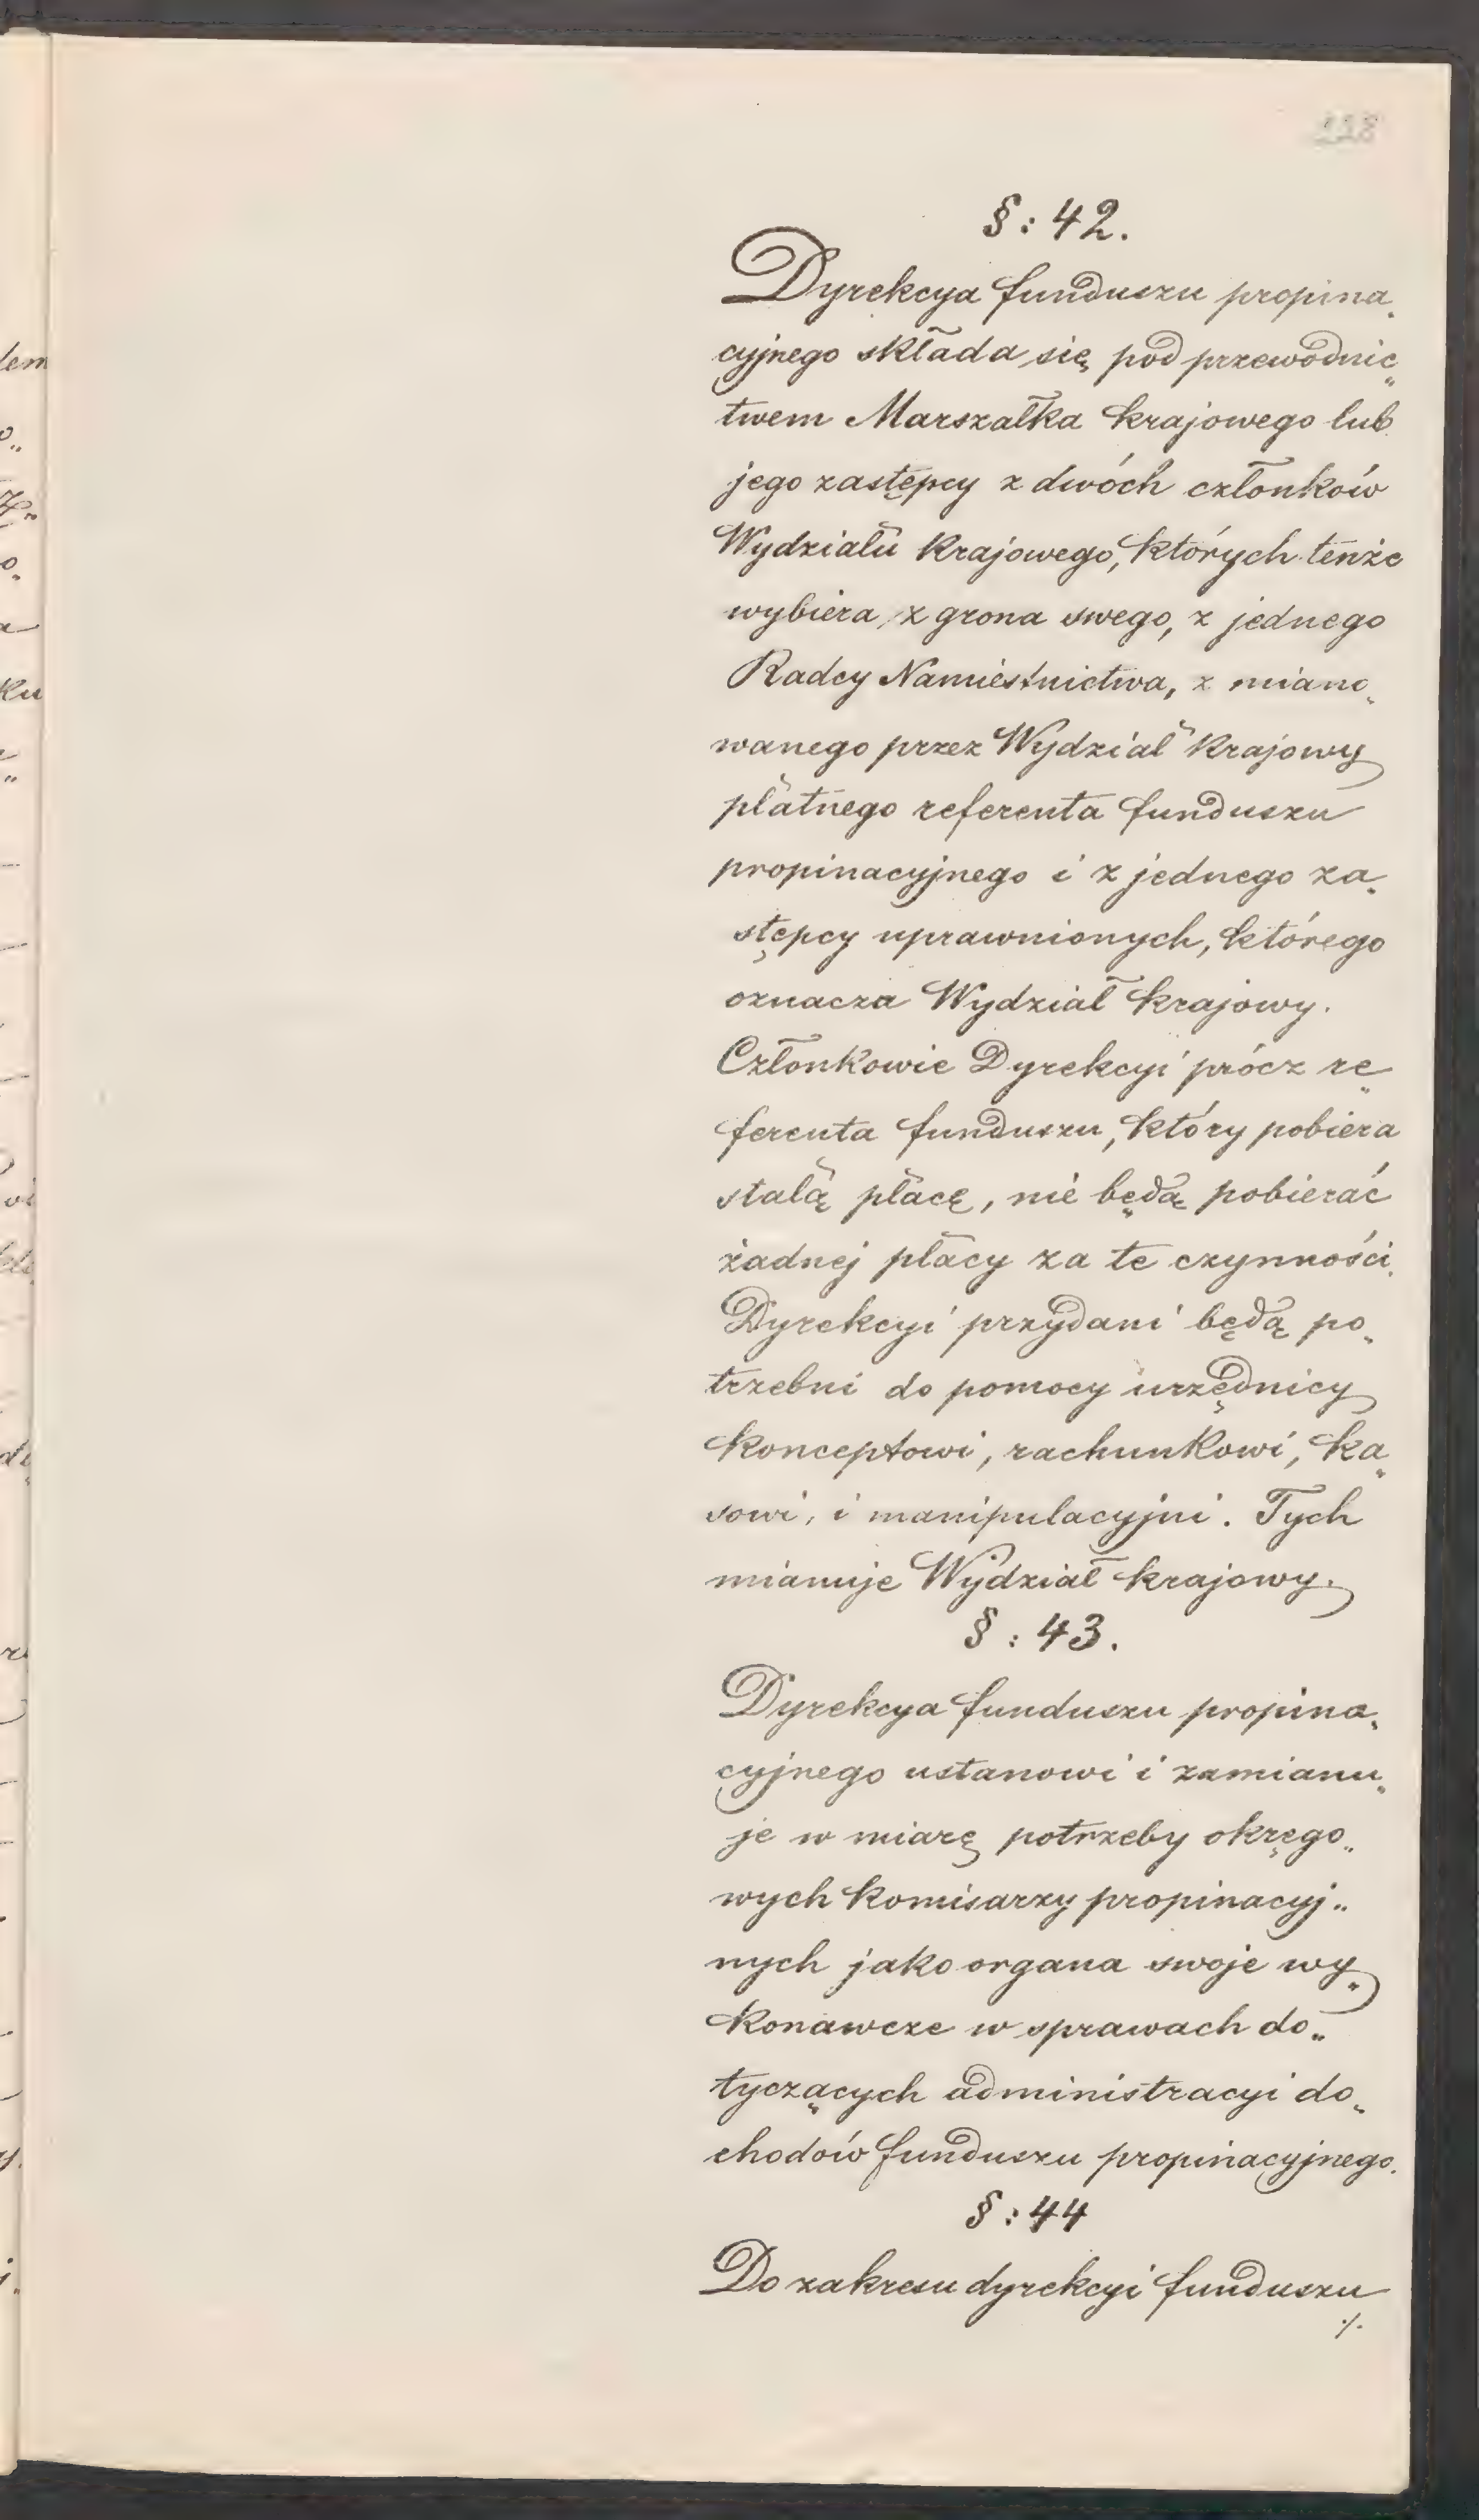 §: 42.
Dyrekcya funduszu propina„
cyjnego składa się pod przewodnic„
twem Marszałka krajowego lub
jego zastępcy z dwóch członków
Wydziału krajowego, których tenże
wybiera z grona swego, z jednego
Radcy Namiestnictwa, z miano„
wanego przez Wydział krajowy
płatnego referenta funduszu
propinacyjnego i z jednego za„
stępcy uprawnionych, którego
oznacza Wydział krajowy.
Członkowie Dyrekcyi prócz re„
ferenta funduszu, który pobiera
stałą płacę, nie będą pobierać
żadnej płacy za te czynności.
Dyrekcyi przydani będą po„
trzebni do pomocy urzędnicy
konceptowi, rachunkowi, ka„
sowi, i manipulacyjni. Tych
mianuje Wydział krajowy.
§: 43.
Dyrekcya funduszu propina„
cyjnego ustanowi i zamianu„
je w miarę potrzeby okręgo„
wych komisarzy propinacyj„
nych jako organa swoje wy„
konawcze w sprawach do„
tyczących administracyi do„
chodów funduszu propinacyjnego.
§: 44
Do zakresu dyrekcyi funduszu
./.